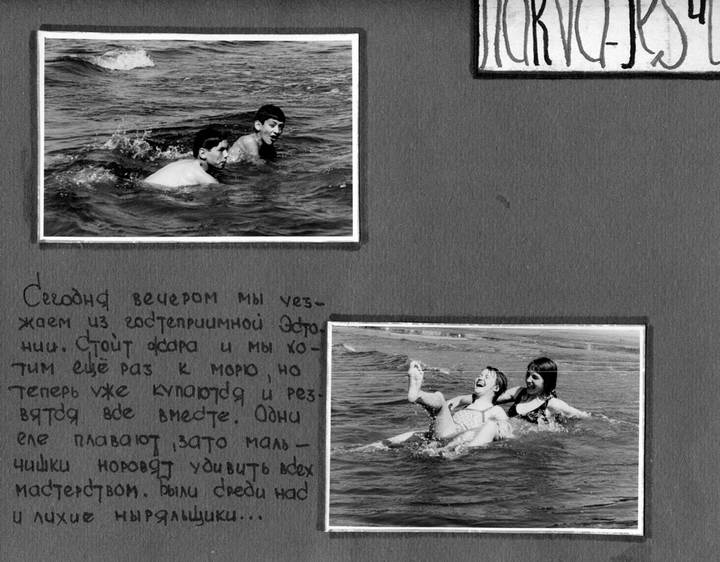 Narva-Jesu
Сегодня вечером мы уез-
жаем из гостеприимной Эсто-
нии. Стоит жара и мы хо-
тим ещё раз к морю, но
теперь уже купаются и рез-
вятся все вместе. Одни
еле плавают, зато маль-
чишки норовят удивить всех
мастерством. Были среди нас
и лихие ныряльщики...